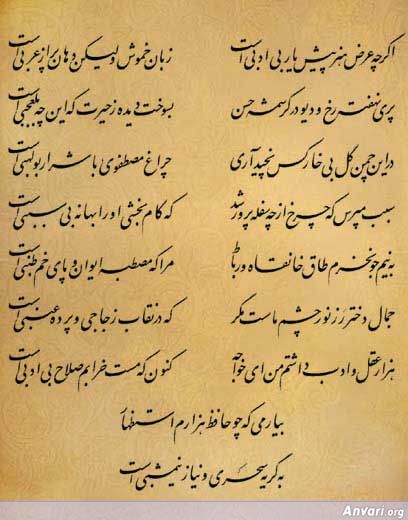 اگرچه عرض هنر پیش یار بی ادبی است زبان خموش ولیکن دهان پر از عربی است
پری نهفت رخ و دیو در کرشمه حسن بسوخت دیده ز حیرت که این چه بلعجبی است
در این چمن گل بی خار کس نچید آری چراغ مصطفوی با شرار بولهبی است
سبب مپرس که چرخ از چه سفله پرور شد که کام بخشی او را بهانه بی سببی است
به نیم جو نخرم طاق خانقاه و رباط مرا که مصطبه ایوان و پای خم طنبی است
جمال دختر رز نور چشم ماست مگر که در نقاب زجاجی و پرده عنبی است
هزار عقل و ادب داشتم من ای خواجه کنون که مست خرابم صلاح بی ادبی است
بیار می که چو حافظ هزارم استظهار
به گریه سحری و نیاز نیمشبی است
Anvari.org